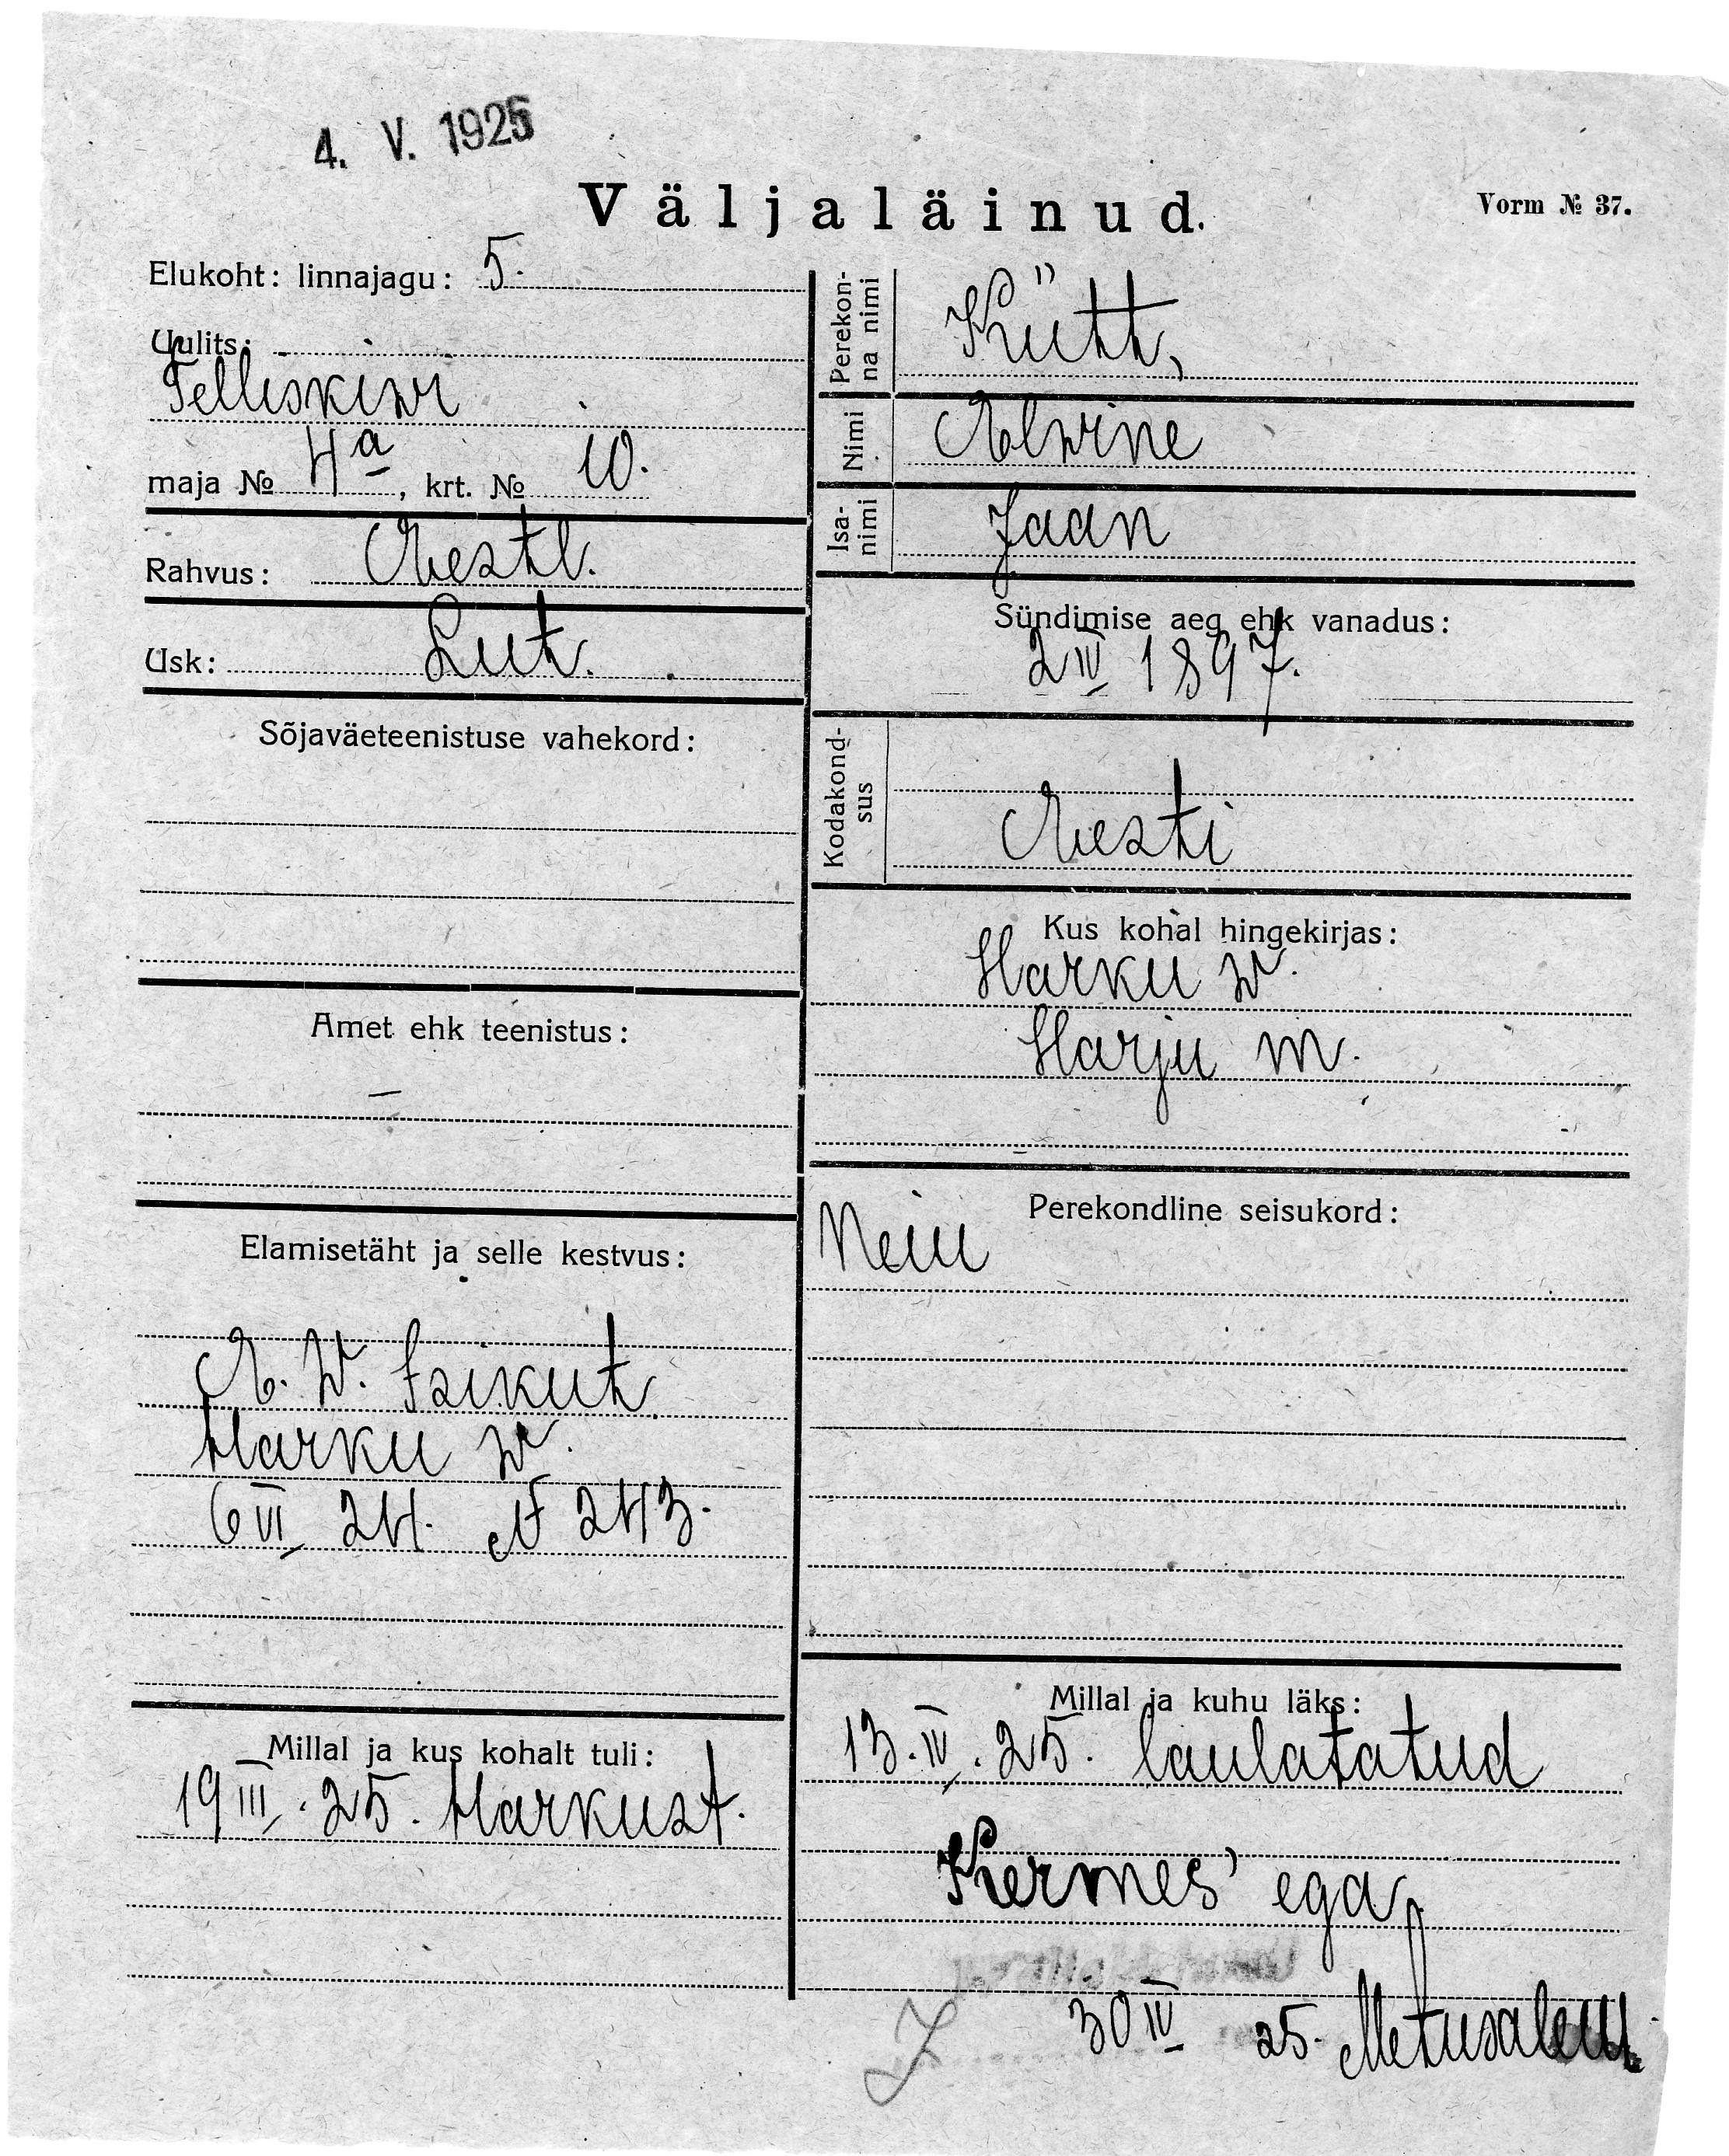 4. V. 1925
Väljaläinud.
Vorm № 37.
Elukoht: linnajagu: 5.
Uulits:
Telliskiwi
maja № 4a, krt. № 10.
Rahvus: Eestl.
Usk: Lut.
Sõjaväeteenistuse vahekord:
Amet ehk teenistus:
—
Elamisetäht ja selle kestvus:
E. W. Isikut.
Harku w.
6 VI 24. № 243.
Millal ja kus kohalt tuli:
19 III. 25. Harkust.
Perekon-
na nimi
Kütt,
Nimi
Elwine
Isa-
nimi
Jaan
Sündimise aeg ehk vanadus:
2 IV 1897.
Kodakond-
sus
Eesti
Kus kohal hingekirjas:
Harku w.
Harju m.
Perekondline seisukord:
Neiu
Millal ja kuhu läks:
13. IV. 25. laulatatud
Kermes' ega,
30 IV 25.